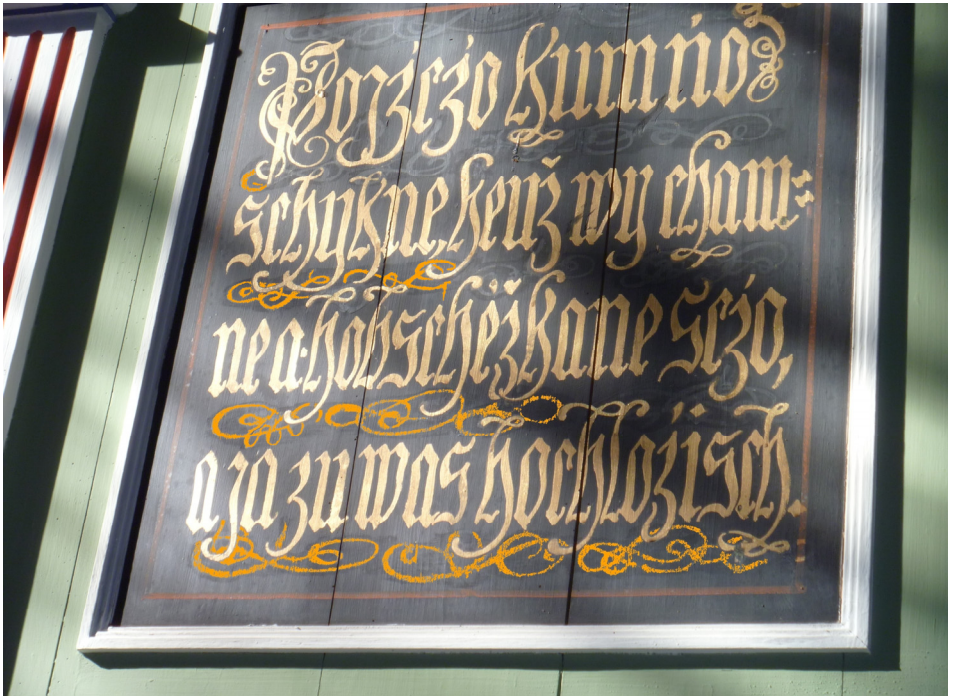 Pojzczo kum ńo
schykne, kenž wy cham=
ne a hobschěžkane sczo,
a ja zu was hochložisch.